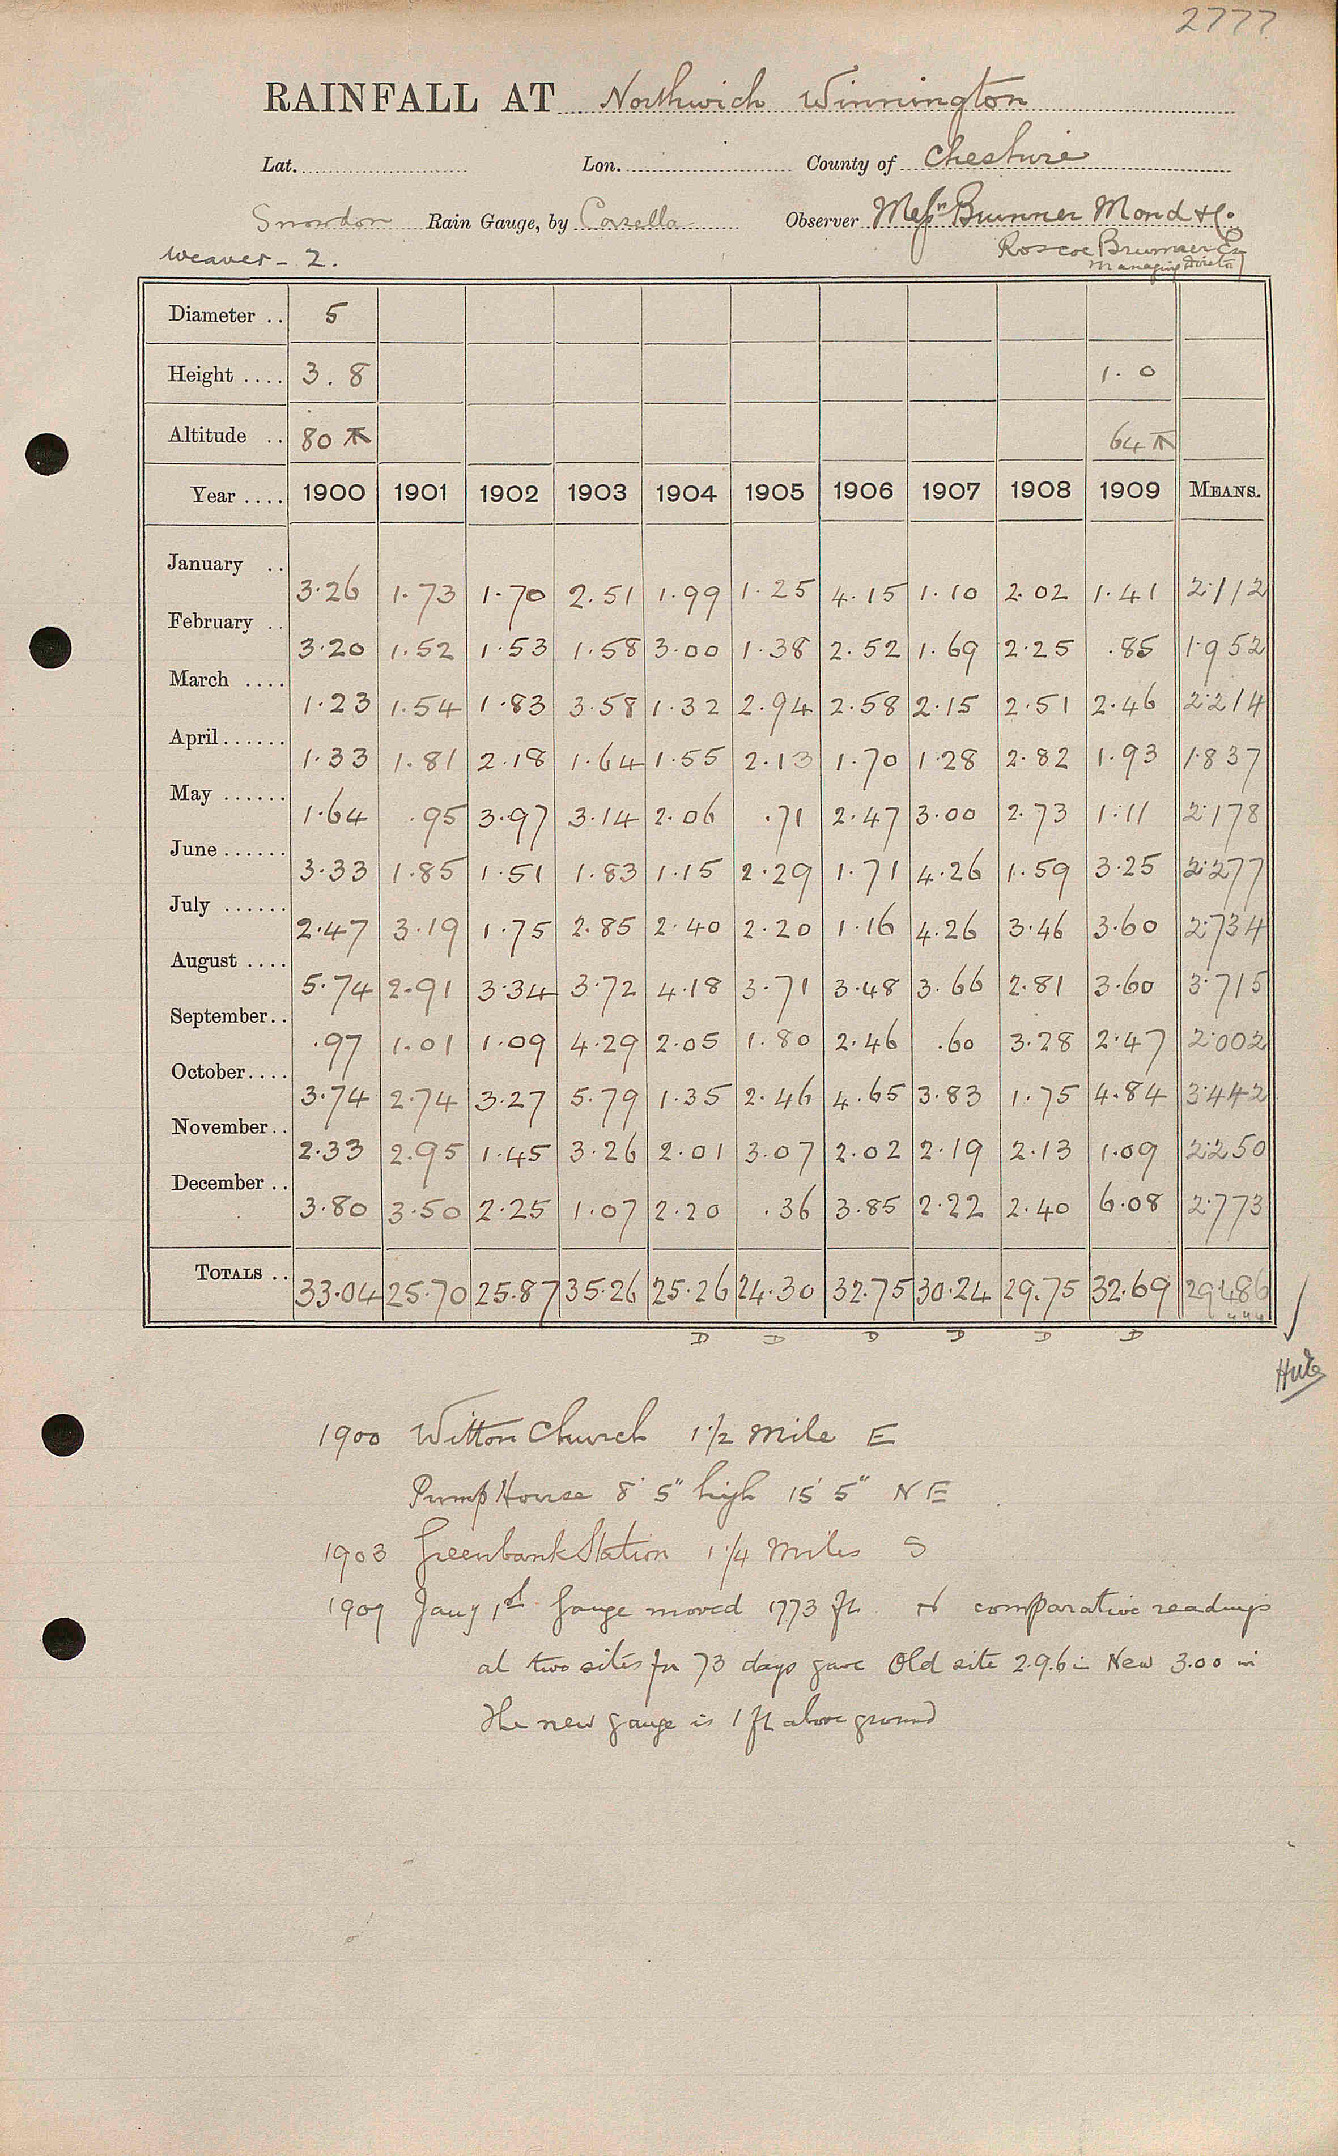 2777
RAINFALL AT Northwich Winnington
Lat. Lon. County of Cheshire
Snowdon Rain Gauge, by Casella Observer Messrs Brunner Mond & Co.
Weaver - 2. Roscoe Brunner Esq
Managing Director
Diameter .. 5
Height .... 3.8 1.0
Altitude .. 80 64
Year .... 1900 1901 1902 1903 1904 1905 1906 1907 1908 1909 MEANS.
January .. 3.26 1.73 1.70 2.51 1.99 1.25 4.15 1.10 2.02 1.41 2.112
February .. 3.20 1.52 1.53 1.58 3.00 1.38 2.52 1.69 2.25 .85 1.952
March .... 1.23 1.54 1.83 3.58 1.32 2.94 2.58 2.15 2.51 2.46 2.214
April ...... 1.33 1.81 2.18 1.64 1.55 2.13 1.70 1.28 2.82 1.93 1.837
May ...... 1.64 .95 3.97 3.14 2.06 .71 2.47 3.00 2.73 1.11 2.178
June ...... 3.33 1.85 1.51 1.83 1.15 2.29 1.71 4.26 1.59 3.25 2.277
July ...... 2.47 3.19 1.75 2.85 2.40 2.20 1.16 4.26 3.46 3.60 2.734
August .... 5.74 2.91 3.34 3.72 4.18 3.71 3.48 3.66 2.81 3.60 3.715
September .. .97 1.01 1.09 4.29 2.05 1.80 2.46 .60 3.28 2.47 2.002
October .... 3.74 2.74 3.27 5.79 1.35 2.46 4.65 3.83 1.75 4.84 3.442
November .. 2.33 2.95 1.45 3.26 2.01 3.07 2.02 2.19 2.13 1.09 2.250
December .. 3.80 3.50 2.25 1.07 2.20 .36 3.85 2.22 2.40 6.08 2.773
TOTALS .. 33.04 25.70 25.87 35.26 25.26 24.30 32.75 30.24 29.75 32.69 29.486
D D D D D D
1900 Witton Church 1 1/2 Mile E
Pump House 8' 5" high 15' 5" NE
1903 Greenbank Station 1 1/4 Miles S
1909 Jany 1st Gauge moved 1773 ft comparative readings
at two sites for 73 days gave Old site 2.96 in New 3.00 in
The new gauge is 1 ft above ground